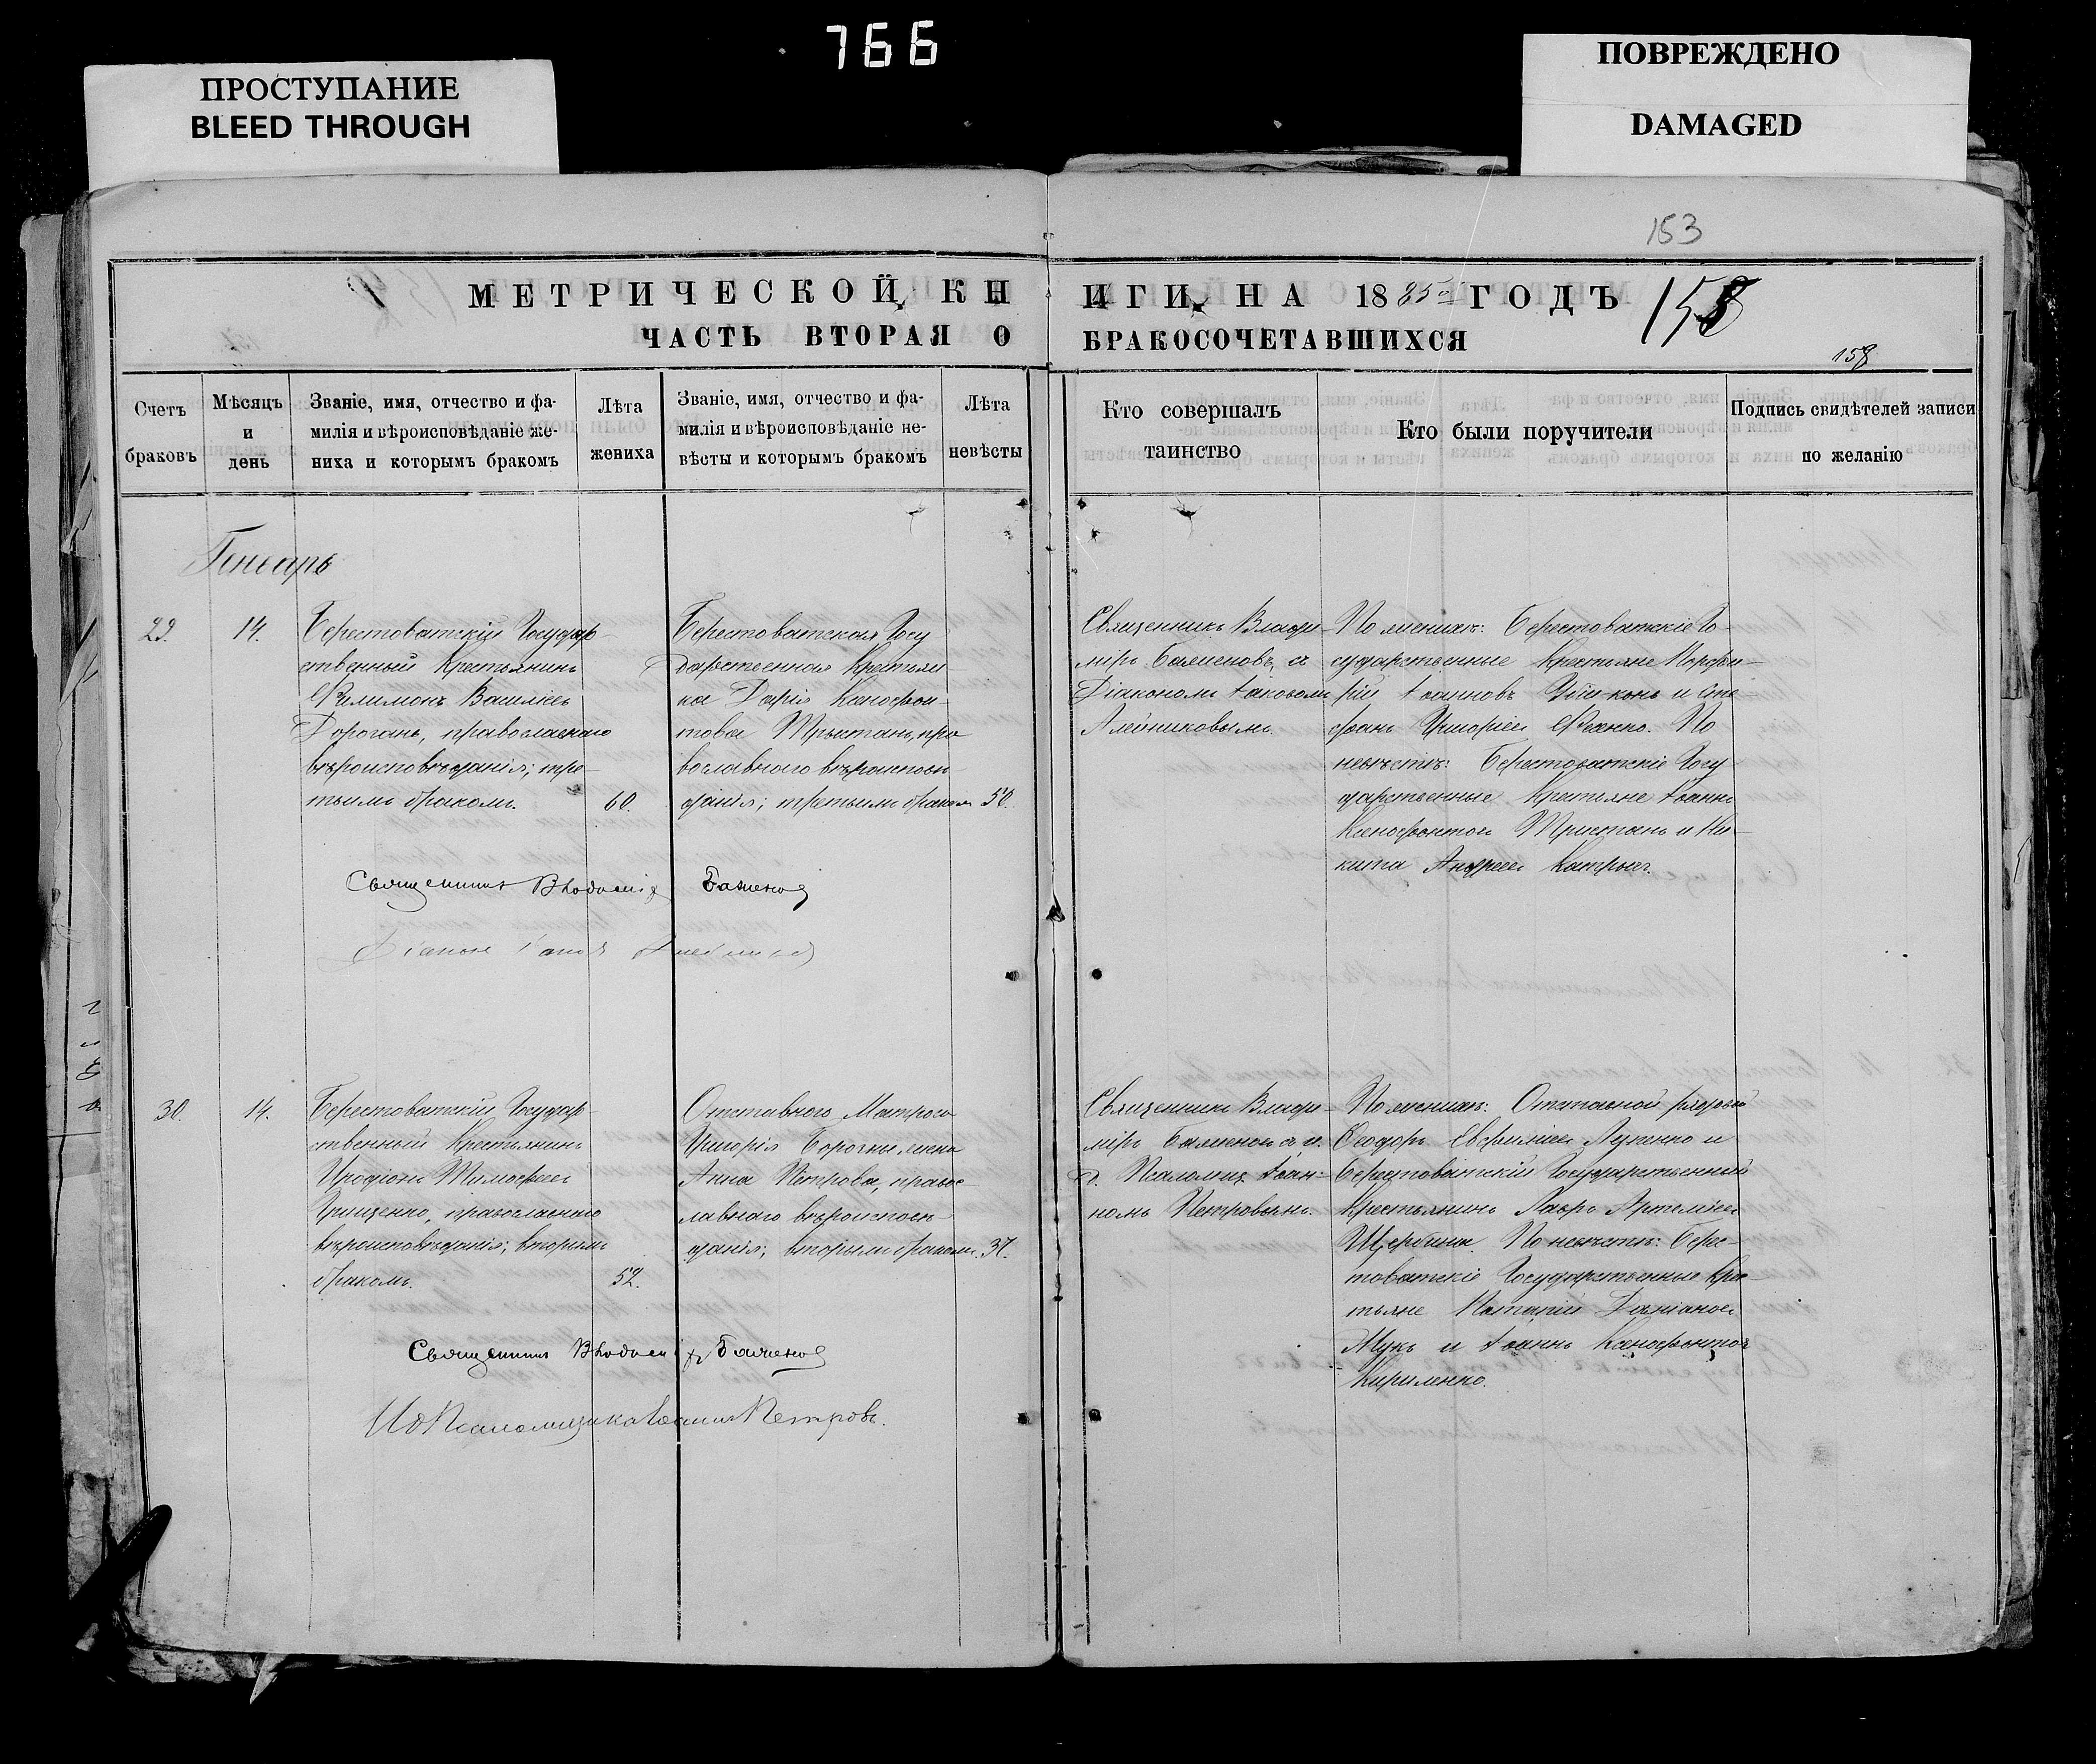 766
ПРОСТУПАНИЕ
BLEED THROUGH
ПОВРЕЖДЕНО
DAMAGED
153
МЕТРИЧЕСКОЙ КНИГИ НА 1885 ГОДЪ
158
ЧАСТЬ ВТОРАЯ О БРАКОСОЧЕТАВШИХСЯ
158
Счетъ браковъ
Мѣсяцъ и день
Званіе, имя, отчество и фа-
милія и вѣроисповѣданіе же-
ниха и которымъ бракомъ
Лѣта жениха
Званіе, имя, отчество и фа-
милія и вѣроисповѣданіе не-
вѣсты и которымъ бракомъ
Лѣта невѣсты
Кто совершалъ
таинство
Кто были поручители
Подпись свидѣтелей записи
по желанію
Генварь
29.
14.
Берестоватскій Государ-
ственный Крестьянинъ
Филимонъ Василіевъ
Дорогань, православнаго
вѣроисповѣданія; тре-
тьимъ бракомъ.
60.
Берестоватская Госу
дарственная Крестьян-
ка Дарія Ксенофон-
това Тристанъ, пра
вославнаго вѣроисповѣ
данія; третьимъ бракомъ
50.
Священникъ Влади-
міръ Баженовъ, съ
Діакономъ Іаковомъ
Алейниковымъ.
По женихѣ: Берестоватскіе Го-
сударственные Крестьяне Порфи-
рій Іоанновъ и Сте-
фанъ Григоріевъ. По
невѣстѣ: Берестоватскіе Госу
дарственные Крестьяне Іоаннъ
Ксенофонтовъ Тристанъ и Ни-
кита Андреевъ
Священникъ Владиміръ Баженовъ
Діаконъ Іаковъ Алейниковъ
30.
14.
Берестоватскій Государ-
ственный Крестьянинъ
Иродіонъ Тимофеевъ
Грищенко, православнаго
вѣроисповѣданія; вторымъ
бракомъ.
52.
Отставнаго Матроса
Григорія жена
Анна Петрова, правос-
лавнаго вѣроисповѣ
данія; вторымъ бракомъ.
37.
Священникъ Влади-
міръ Баженовъ съ и.
д. Псаломщ. Іоан-
номъ Петровымъ.
По женихѣ: Отставной рядовой
Ѳеодоръ Евфиміевъ Луценко и
Берестоватскій Государственный
Крестьянинъ Лавръ Артеміевъ
Щербина. По невѣстѣ: Берес-
товатскіе Государственные Крес-
тьяне Потапій Даміановъ
Мукъ и Іоаннъ Ксенофонтовъ
Кириленко.
Священникъ Владиміръ Баженовъ
ИД Псаломщика Іоаннъ Петровъ.